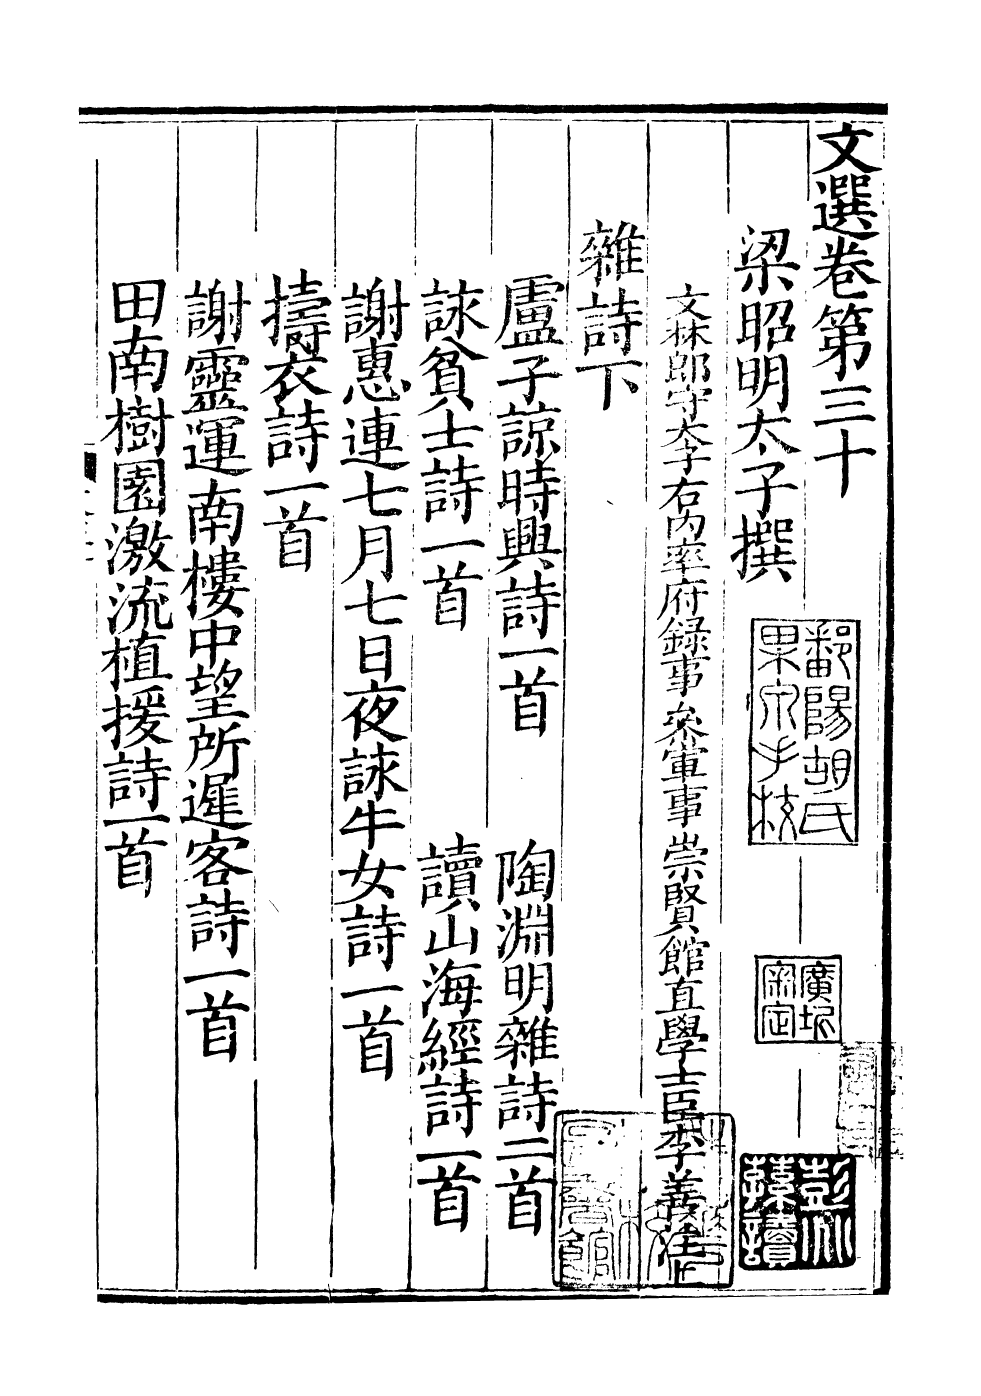 文選卷第三十
梁昭明太子撰
文林郎守太子右內率府録事叅軍事崇賢館直學士臣李善注上
雜詩下
盧子諒時興詩一首　陶淵明雜詩二首
詠貧士詩一首　讀山海經詩一首
謝惠連七月七日夜詠牛女詩一首
擣衣詩一首
謝靈運南樓中望所遲客詩一首
田南樹園激流植援詩一首
鄱陽胡氏
果泉手校
廣圻
審定